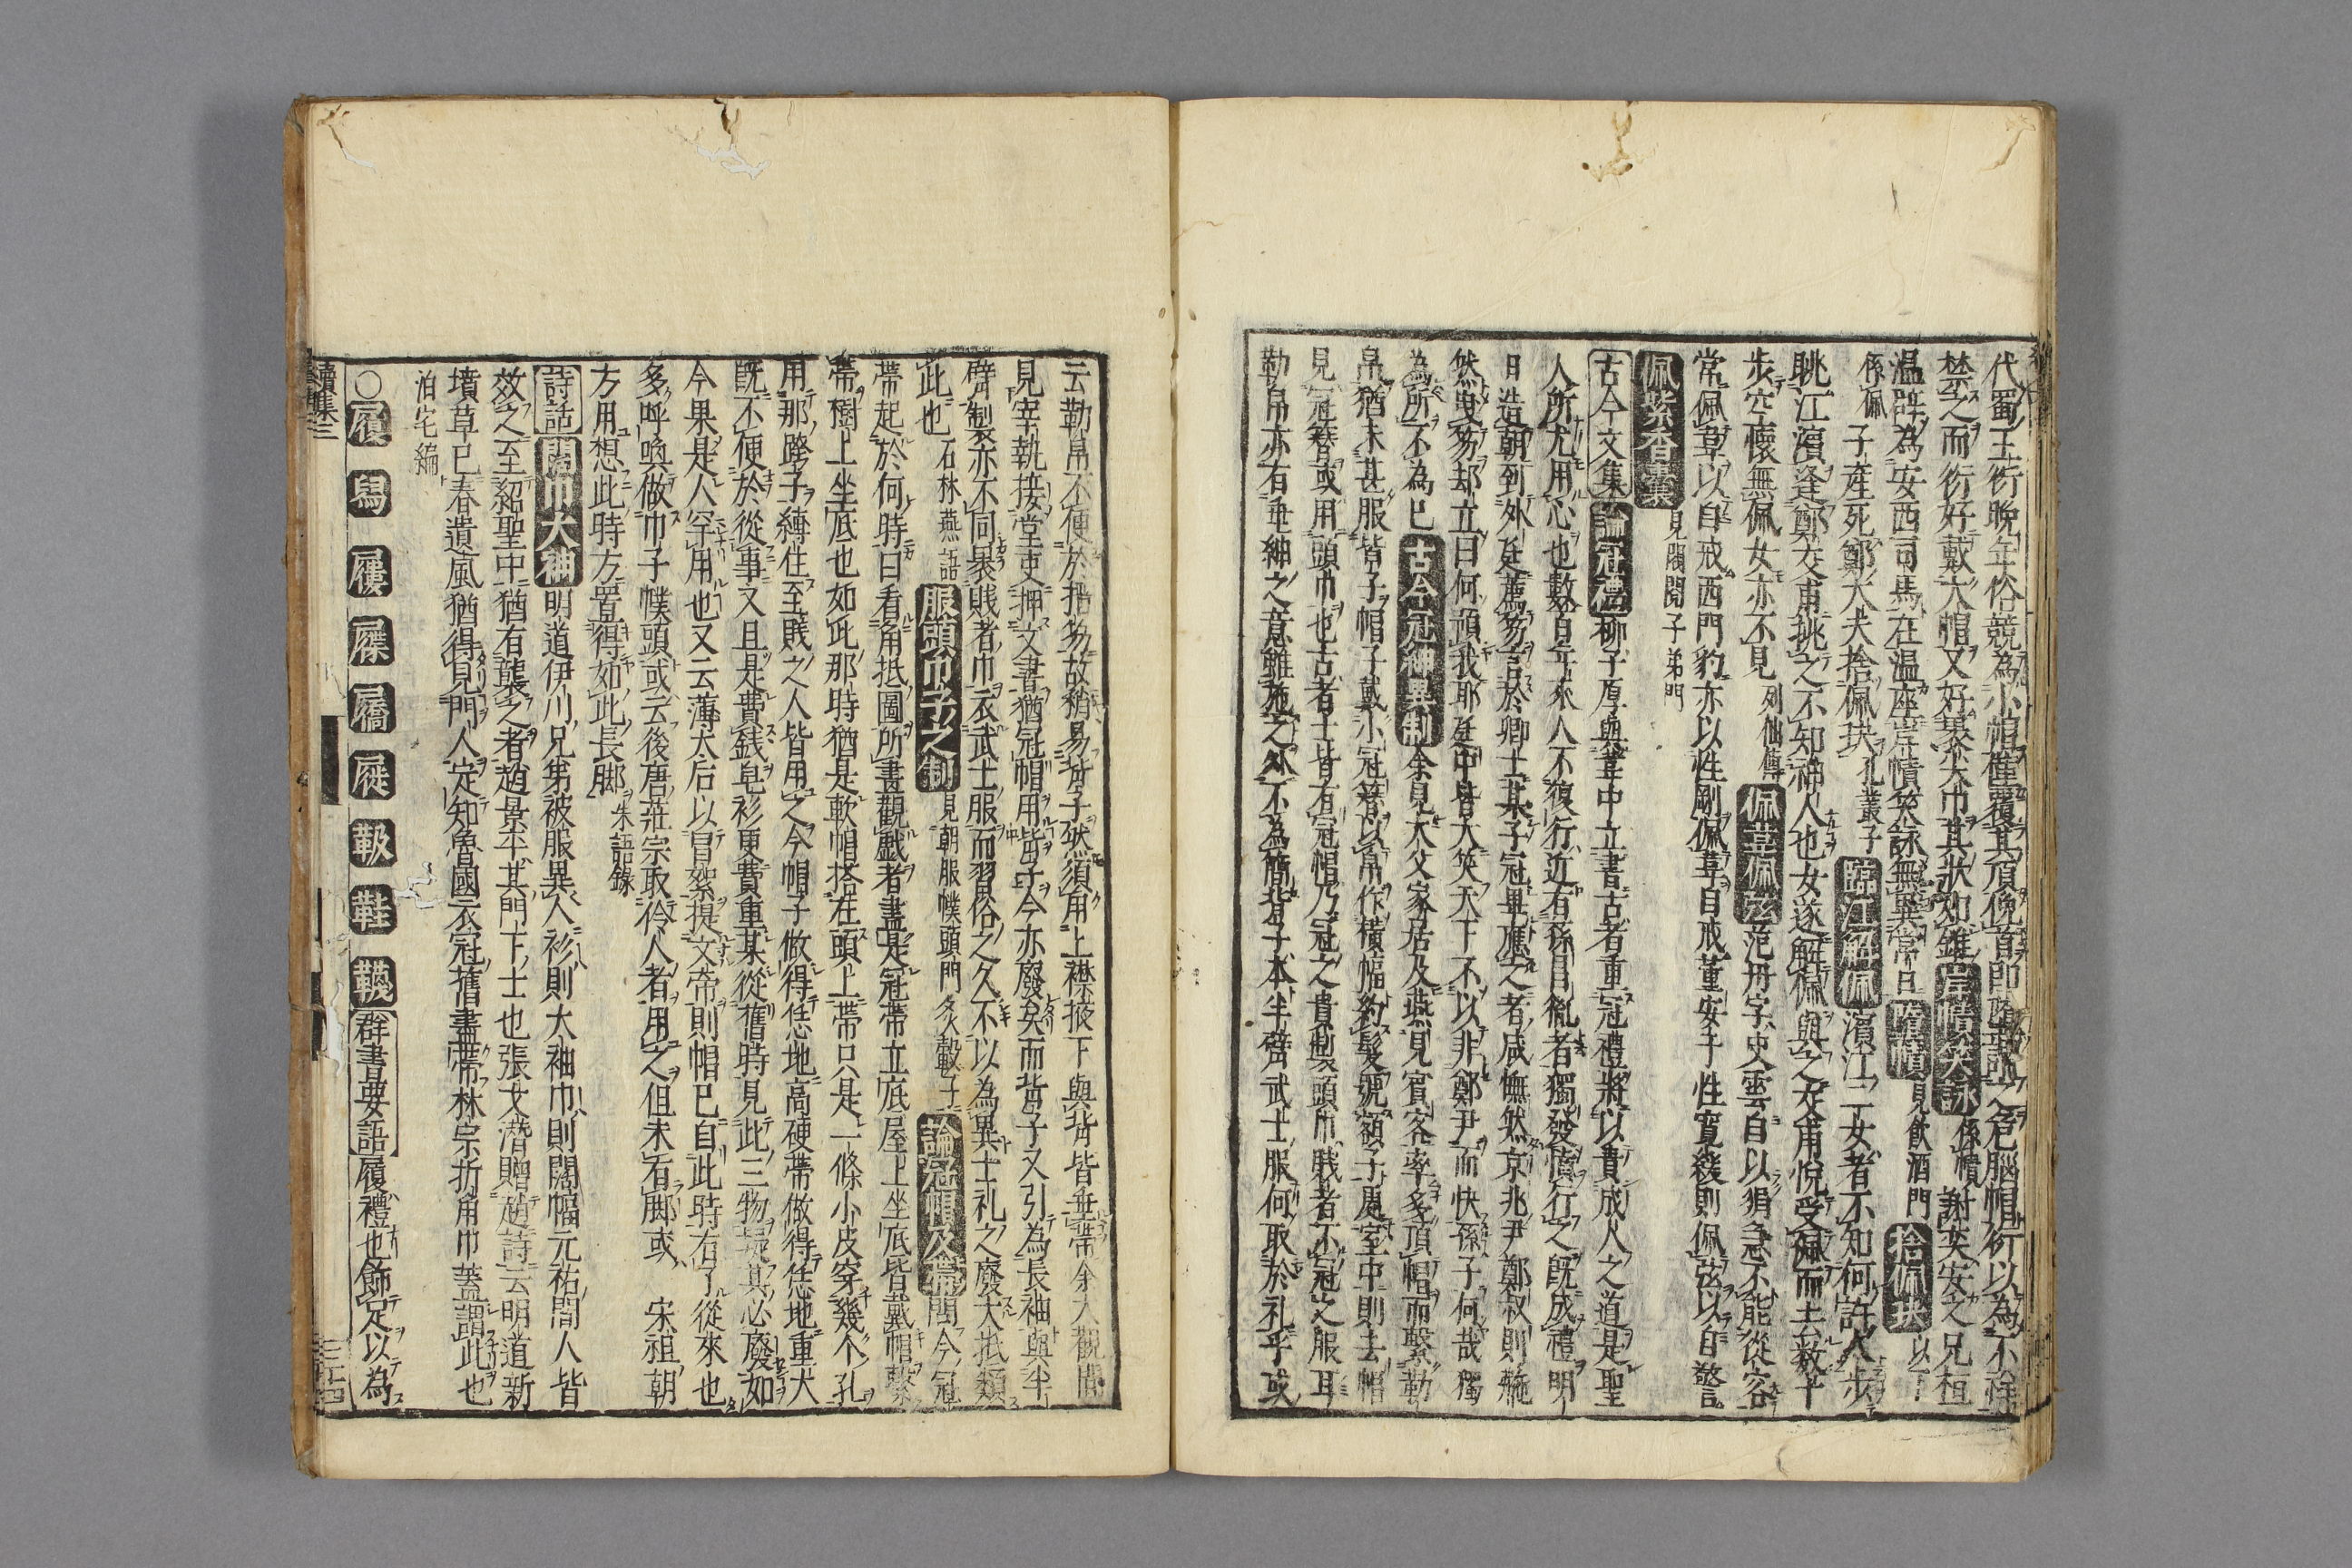 代蜀王衍晚年俗競為小帽僅覆其頂俛首即墮謂之危腦帽衍以為不祥
禁之而衍好戴大帽又好裹尖巾其狀如錐岸幘笑詠係幘謝奕安之兄桓
温辟為安西司馬在温座岸幘笑詠無異常日墮幘見飲酒門捨佩玦以下
係佩子産死鄭大夫捨佩玦孔叢子臨江解佩濱江二女者不知何許人步
眺江濱逢鄭交甫挑之不知神人也女遂解佩與之交甫悅受佩而去數十
步空懷無佩女亦不見列仙傳佩韋佩弦范丹字史雲自以狷急不能從容
常佩韋以自戒西門豹亦以性剛佩韋自戒董安于性寬緩則佩弦以自警
佩紫香囊見閥閱子弟門
古今文集論冠禮柳子厚與韋中立書古者重冠禮將以責成人之道是聖
人所尤用心也數百年來人不復行近有孫昌胤者獨發憤行之既成禮明
日造朝到外廷薦笏言於卿士某子冠畢應之者咸憮然京兆尹鄭叔則怫
然曳笏却立曰何預我耶廷中皆大笑天下不以非鄭尹而快孫子何哉獨
為所不為已古今冠神異制余見大父家居及燕見賓客率多頂帽而繫勒
帛猶未甚服背子帽子戴小冠簪以帛作橫幅約髮號額子處室中則去帽
見冠簪或用頭巾也古者士皆有冠帽乃冠之貴製頭巾賤者不冠之服耳
勒帛亦有垂紳之意雖施之外不為簡背子本半臂武士服何取於礼乎或
云勒帛不便於搢笏故稍易背子然須用上襟掖下與背皆垂帶余大觀間
見宰執接堂吏押文書猶冠帽用背子今亦廢矣而背子又引為長袖與半
臂製亦不同裹賤者巾衣武士服而習俗之久不以為異士礼之廢大抵類
此也石林燕語服頭巾子之制見朝服幞頭門炙轂子論冠帽及帶問今冠
帶起於何時曰看角抵圖所畫觀戲者盡是冠帶立底屋上坐底皆戴帽繫
帶樹上坐底也如此那時猶是軟帽搭在頭上帶只是一條小皮穿幾个孔
用那跨子縳住至賤之人皆用之今帽子做得恁地高硬帶做得恁地重大
既不便於從事又且是費錢皂衫更費重某從舊時見此三物疑其必廢如
今果是人罕用也又云薄太后以冒絮提文帝則帽已自此時有了從來也
多呼喚做巾子幞頭或云後唐莊宗取伶人者用之但未有脚或　宋祖朝
方用想此時方置得如此長脚朱語錄
詩話闊巾大神明道伊川兄弟被服異人衫則大袖巾則闊幅元祐間人皆
效之至紹聖中猶有襲之者趙景平其門下士也張文潛贈趙詩云明道新
墳草已春遺風猶得見門人定知魯國衣冠舊盡帶林宗折角巾蓋謂此也
泊宅編
○履舄屨屧屩屣靸鞋韈群書要語履禮也飾足以為
續集三
三十四